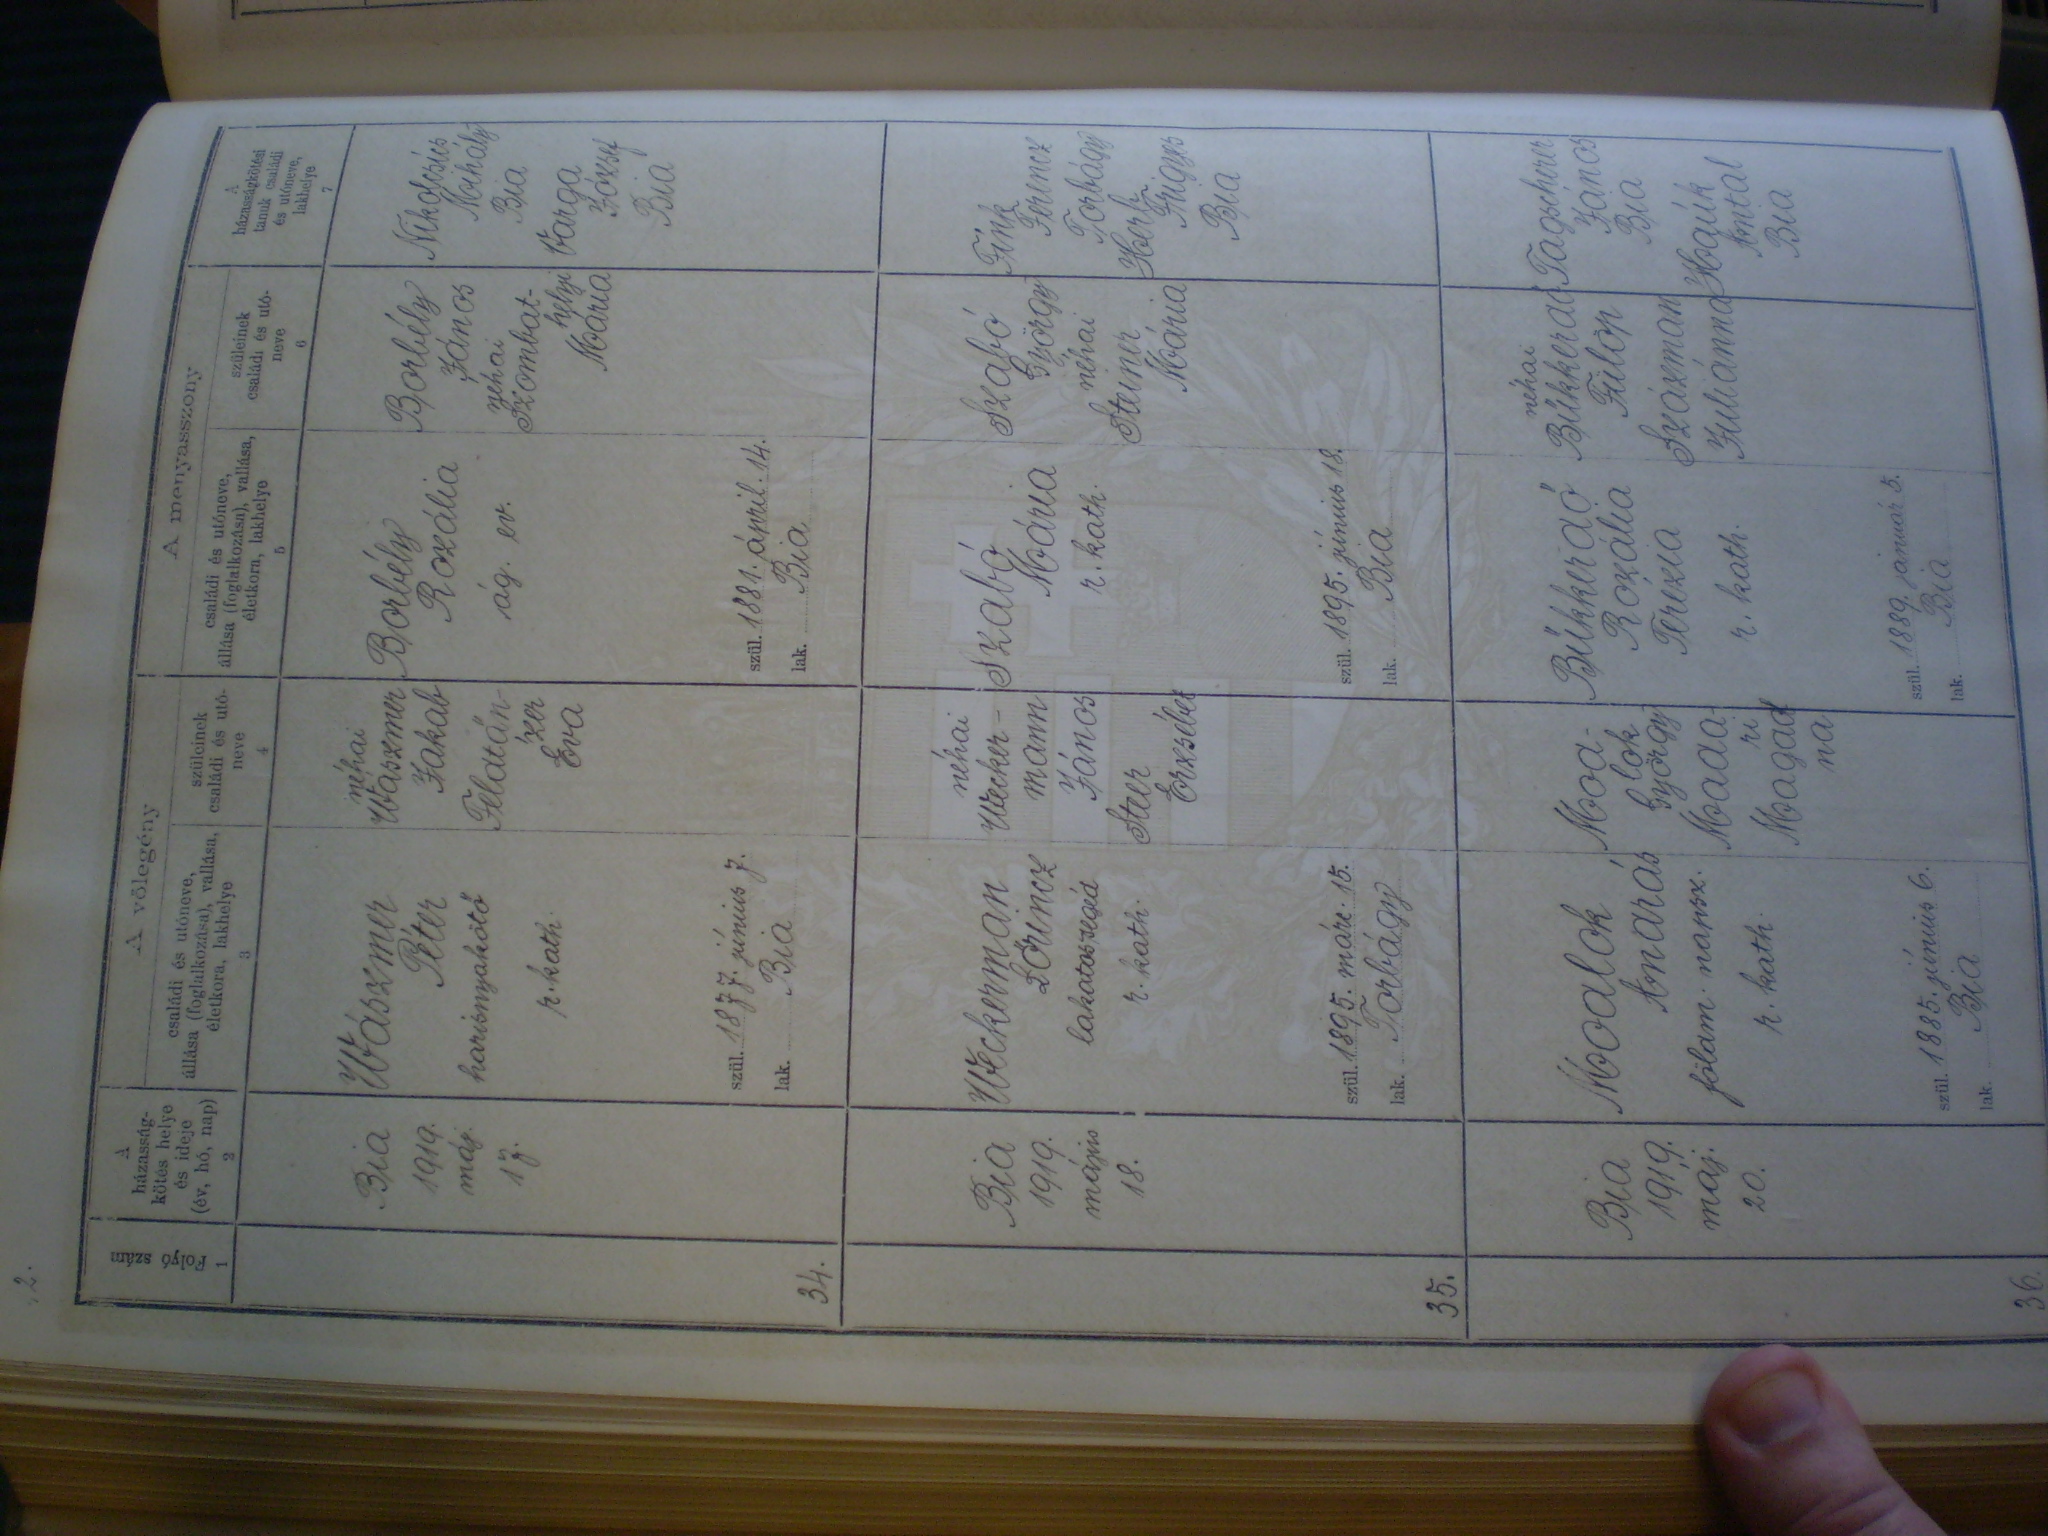 2.
A vőlegény
A menyasszony
Folyó szám
1
A
házasság-
kötés helye
és ideje
(év, hó, nap)
2
családi és utóneve,
állása (foglalkozása), vallása,
életkora, lakhelye
3
szüleinek
családi és utó-
neve
4
családi és utóneve,
állása (foglalkozása), vallása,
életkora, lakhelye
5
szüleinek
családi és utó-
neve
6
A
házasságkötési
tanuk családi
és utóneve,
lakhelye
7
34.
Bia
1919.
máj.
17.
Wászmer
Péter
harisnyakötő
r. kath.
szül. 1877. június 7.
lak. Bia
néhai
Wászmer
Jakab
Feldtän-
zer
Éva
Borbély
Rozália
ág. ev.
szül. 1881. április. 14.
lak. Bia
Borbély
János
néhai
Szombat-
helyi
Mária
Mihály
Bia
Varga
József
Bia
35.
Bia
1919.
május
18.
Weckerman
Lőrincz
lakatossegéd
r. kath.
szül. 1895. márc. 15.
lak. Torbágy
néhai
Wecker-
mann
János
Steer
Erzsébet
Szabó
Mária
r. kath.
szül. 1895. június 18.
lak. Bia
Szabó
György
néhai
Steiner
Mária
Fink
Ferencz
Torbágy
Herb
Frigyes
Bia
36.
Bia
1919.
máj.
20.
Malok
András
földm. napsz.
r. kath.
szül. 1885. június 6.
lak. Bia
Ma-
lok
György
Mada-
ri
Magdol
na
Rozália
Terézia
r. kath.
szül. 1889. január 5.
lak. Bia
néhai
Fülöp
Szászman
Juliánna
Tagscherer
János
Bia
Antal
Bia